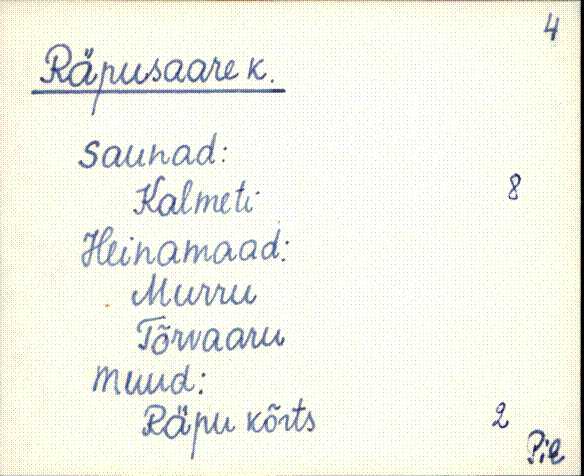 4
Räpusaare k.
Saunad:
Kalmeti 8
Heinamaad:
Murru
Tõrvaaru
Muud:
Räpu kõrts 2
Pil